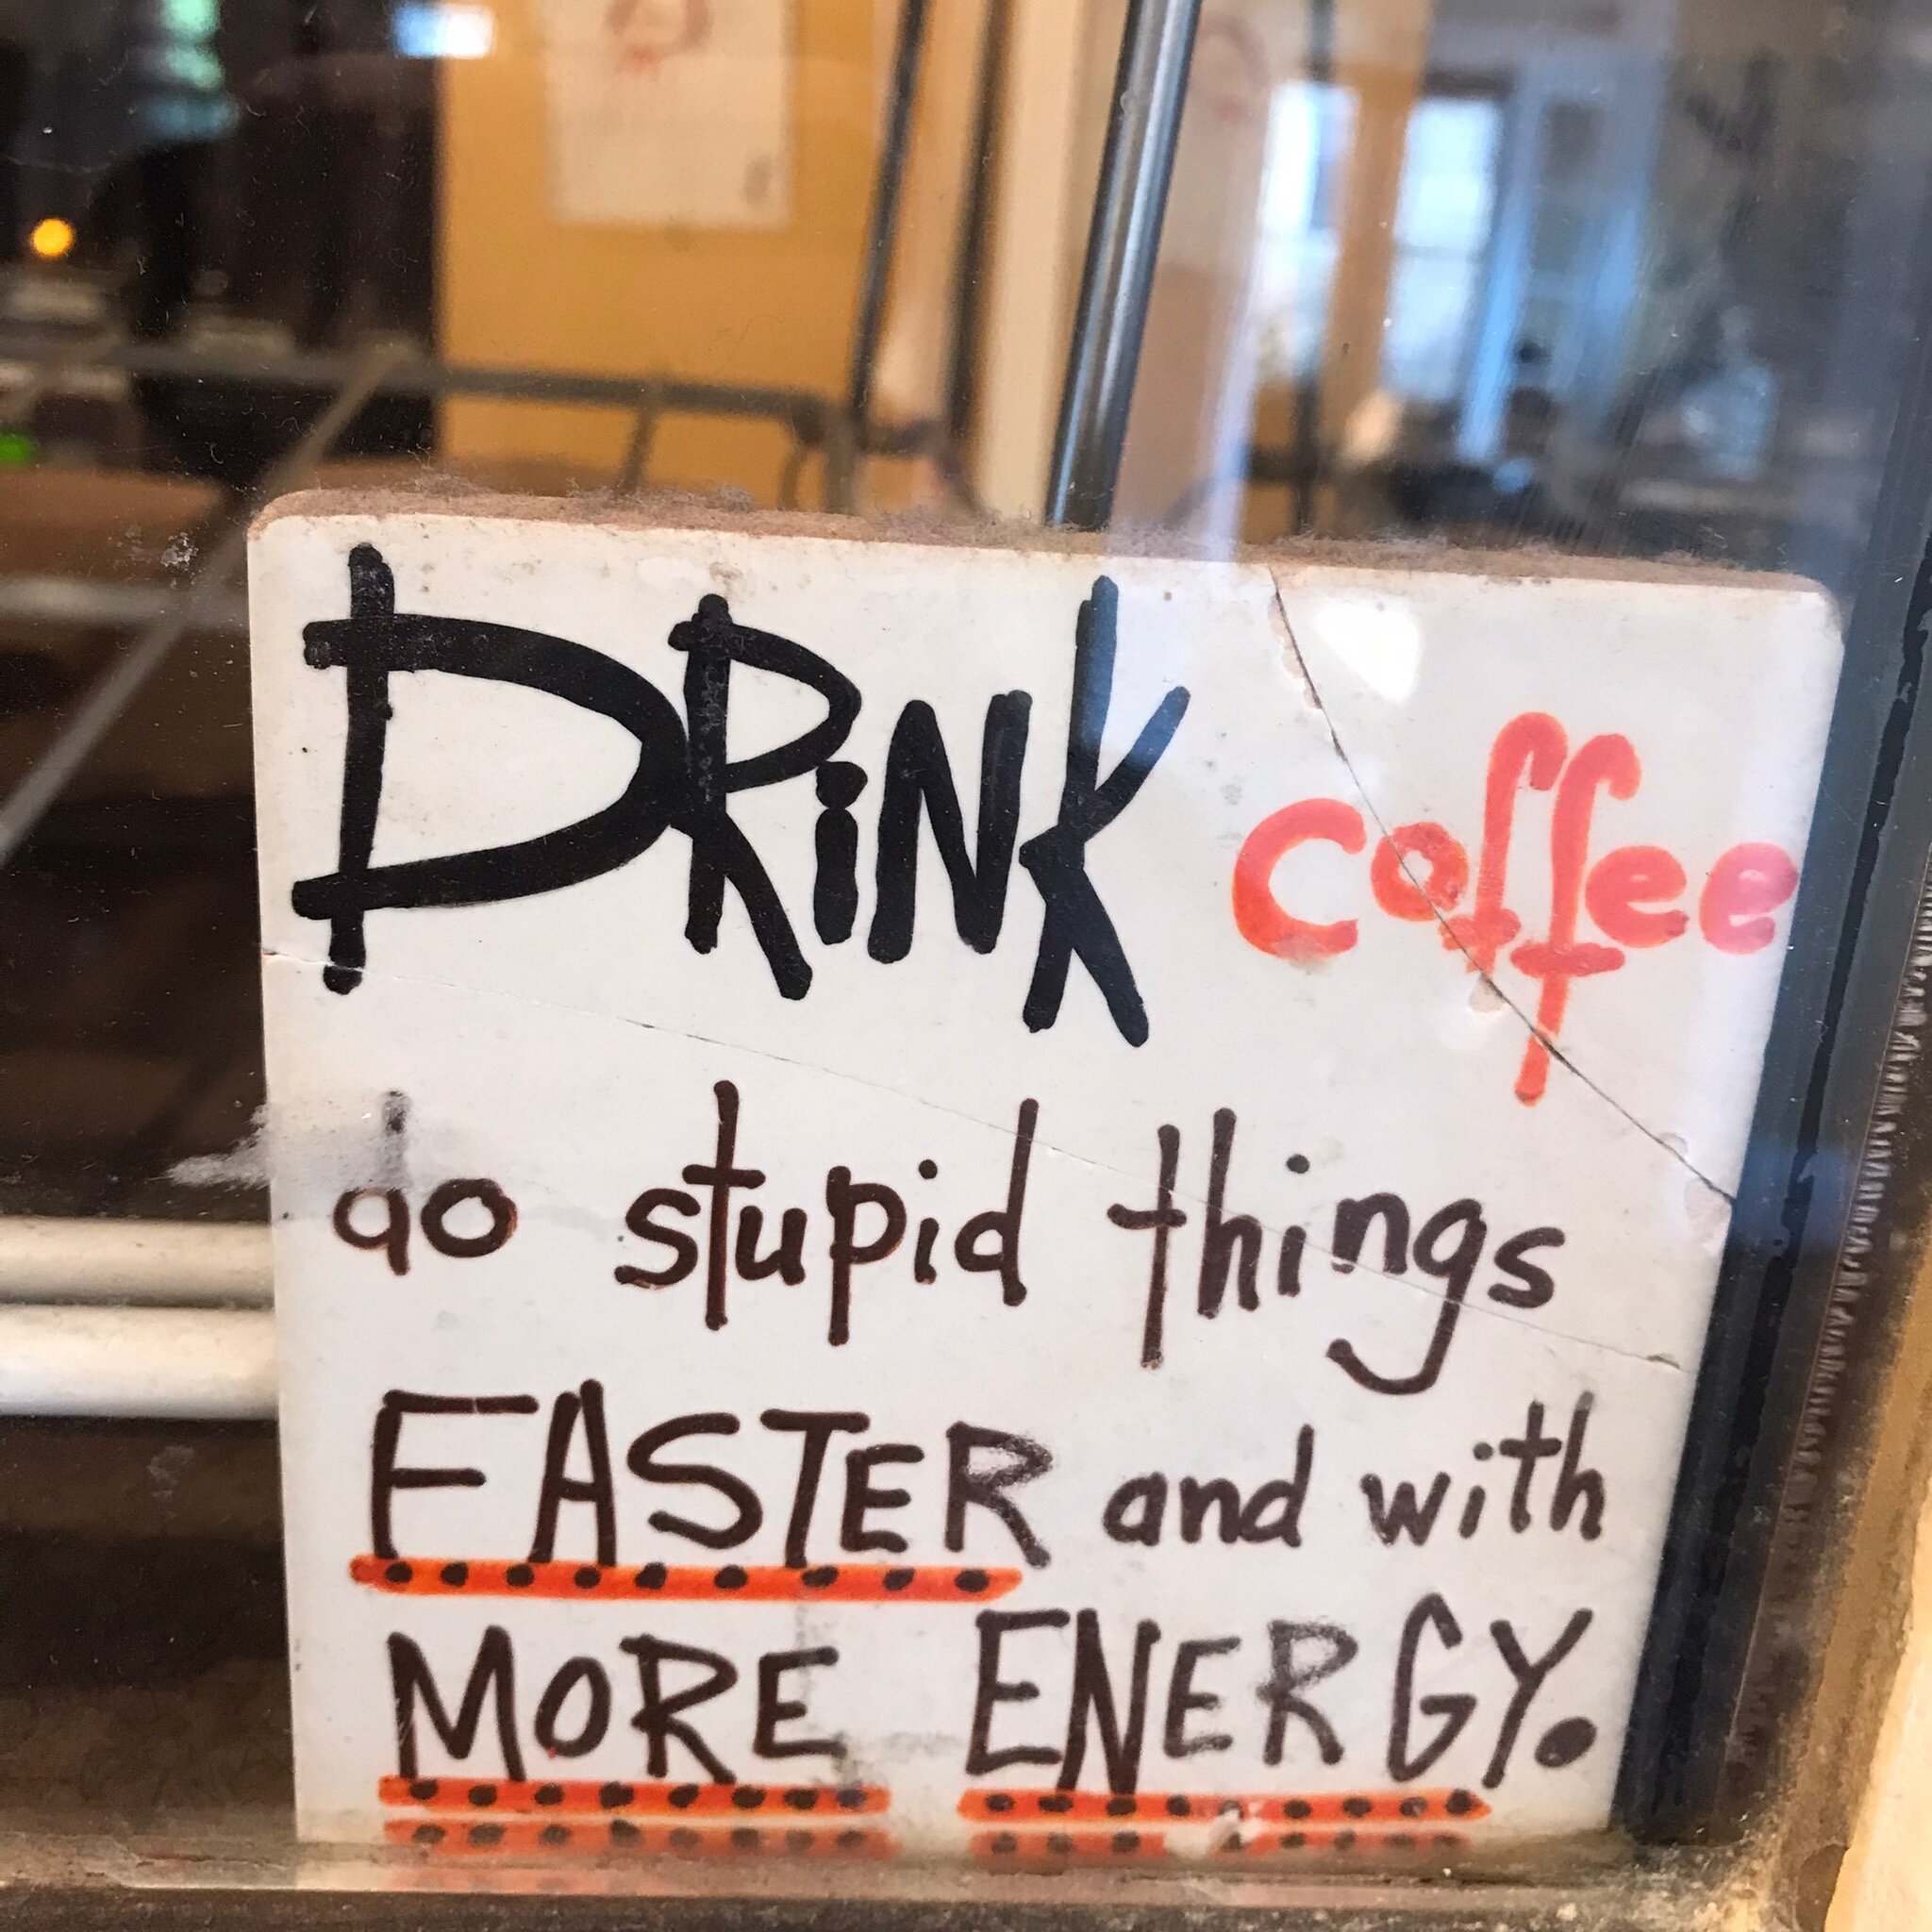 DRiNK coffee
do stupid things
FASTER and with
MORE ENERGY.